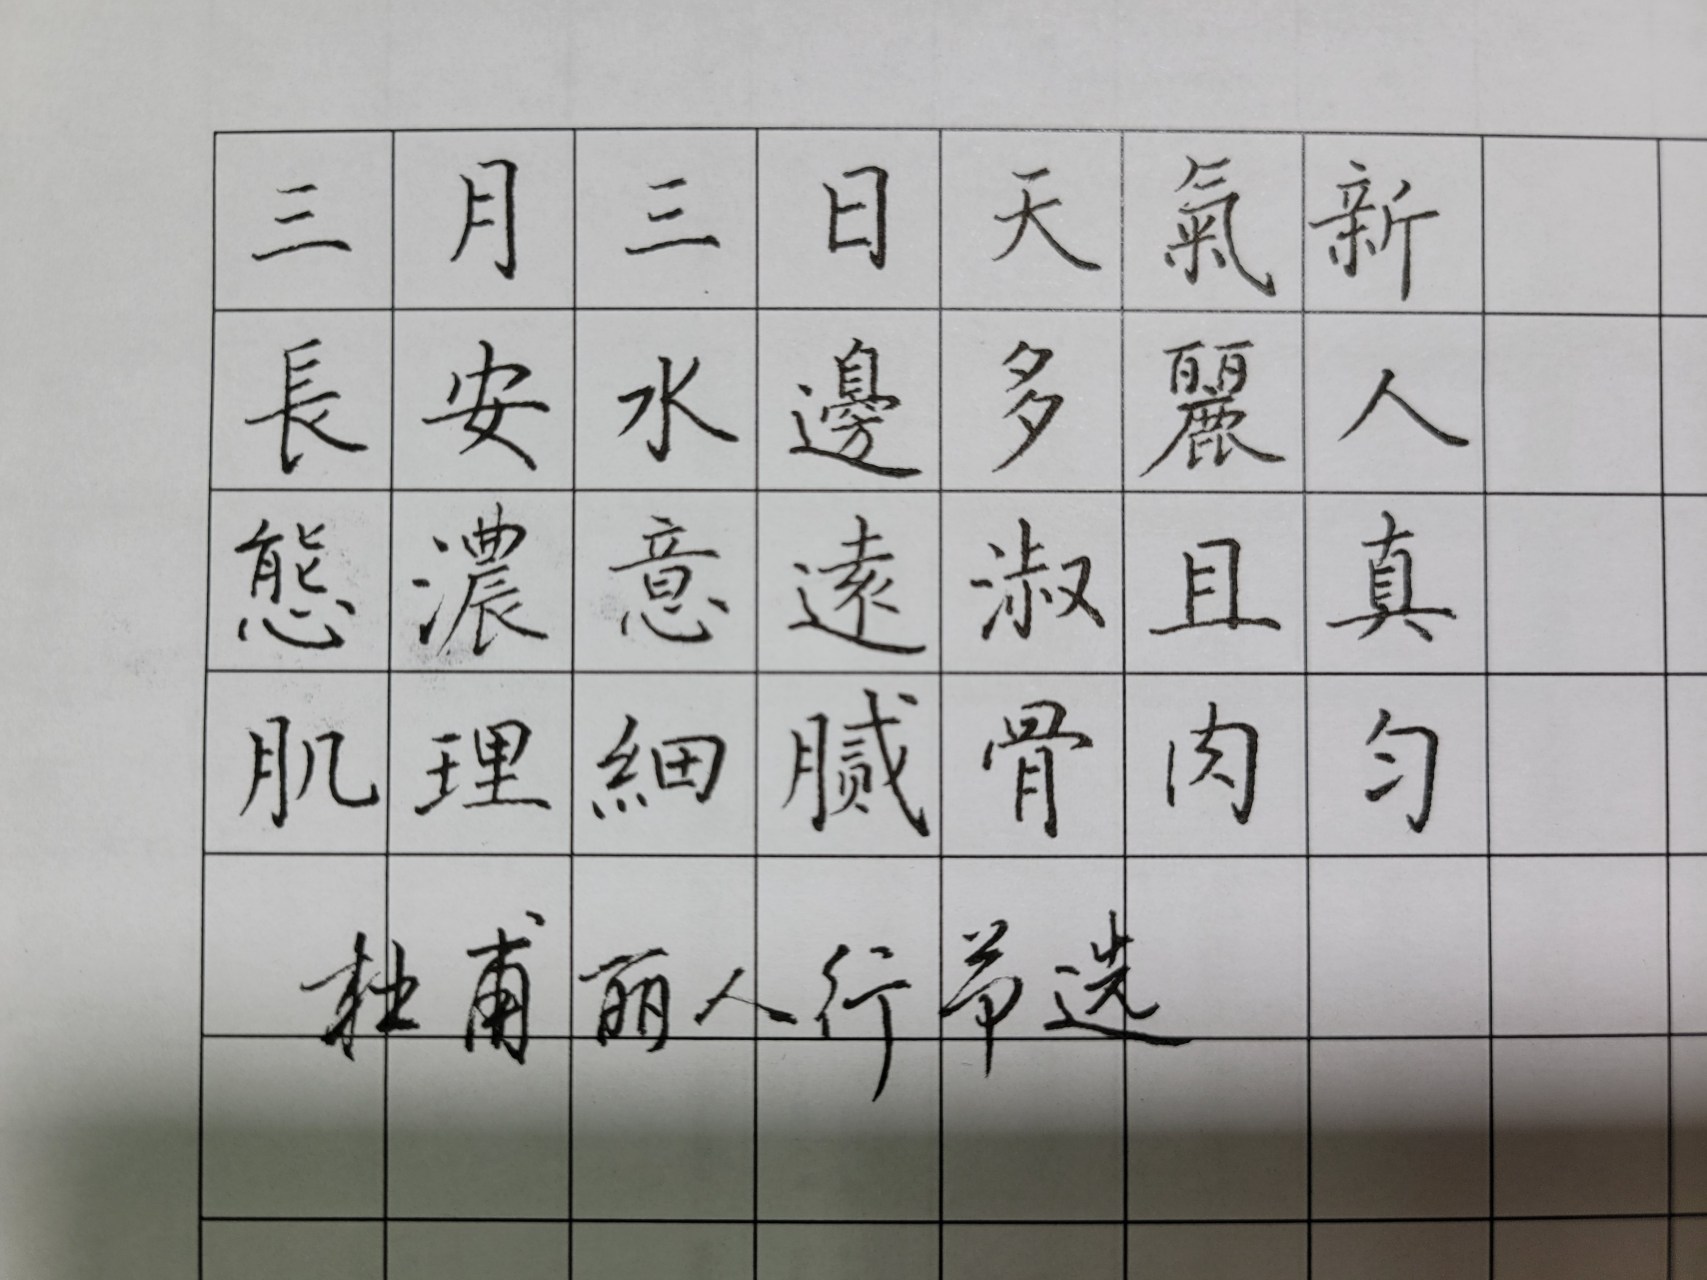 三月三日天氣新
長安水邊多麗人
態濃意遠淑且真
肌理細膩骨肉匀
杜甫丽人行节选